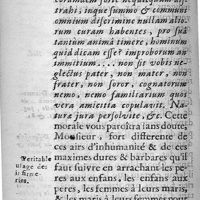 omnium discrimine nullam alio-
rum curam habentes, pro sua
tantùm anima timere, hominum
quid dicam esse? improborum an
immitium.... non sit vobis ne-
glectus pater, non mater, non
frater, non soror, cognatorum
nemo, non familiarium quos
vera amicitia copulavit. Na-
turæ jura persolvite, &c. Cette
morale vous paroîtra sans doute,
Monsieur, fort differente de
ces airs d'inhumanité & de ces
Veritable maximes dures & barbares qu'il
usage des faut suivre en arrachant les pe-
infirme-
ries. res aux enfans, les enfans aux
peres, les femmes à leurs maris,
& les maris à leurs femmes pour